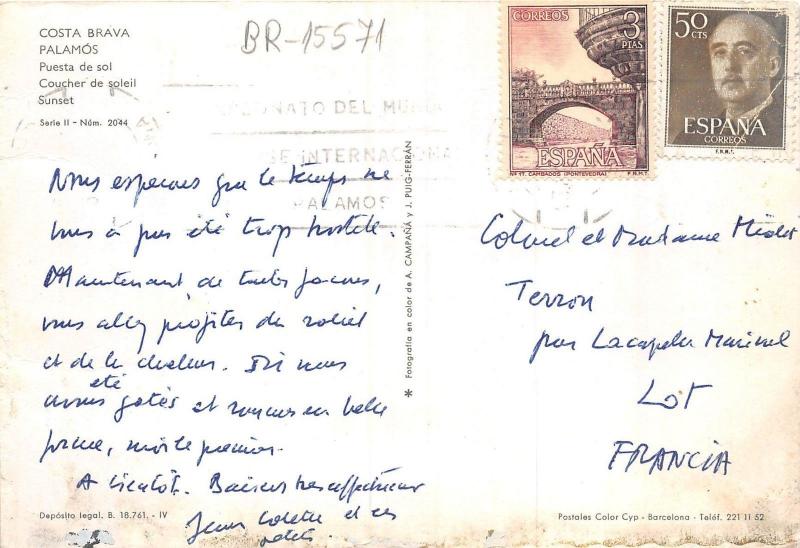 COSTA BRAVA
PALAMÓS
Puesta de sol
Coucher de soleil
Sunset
Serie II - Núm. 2044
BR-15571
CORREOS 3 PTAS
ESPAÑA
Nº 17. CAMBADOS (PONTEVEDRA) F.N.M.T.
50 CTS
ESPAÑA
CORREOS
F.N.M.T.
ONATO DEL MU
INTERNACIONA
PALAMOS
Nous espérons que le temps ne
vous a pas été trop hostile.
Maintenant, de toutes façons,
vous allez profiter du soleil
et de la chaleur. Ici nous
avons été gatés et sommes en belle
forme,
A bientôt. Baisers très affectueux
Jean Colette et ses
petits.
Fotografía en color de A. CAMPAÑÁ y J. PUIG-FERRÁN
Colonel et Madame
Terrou
par Lacapelle Marival
LOT
FRANCIA
Depósito legal. B. 18.761. - IV
Postales Color Cyp - Barcelona - Teléf. 221 11 52